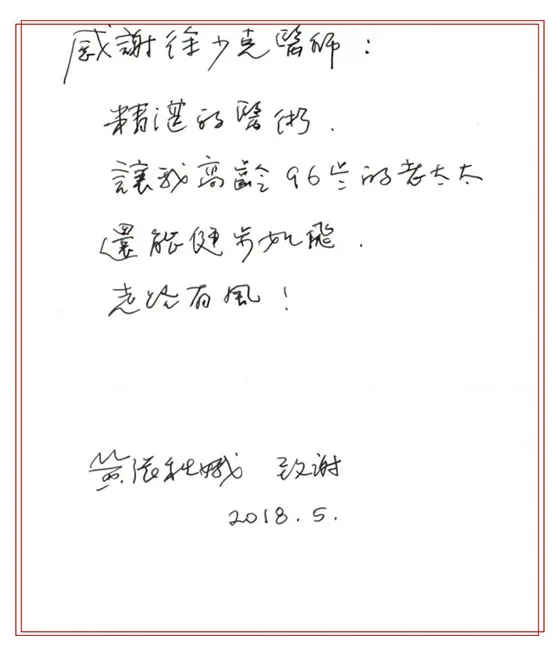 感謝徐少克醫師：
精湛的醫術.
讓我高齡96歲的老太太
還能健步如飛.
走路有風！
黃張秋娥 致謝
2018.5.